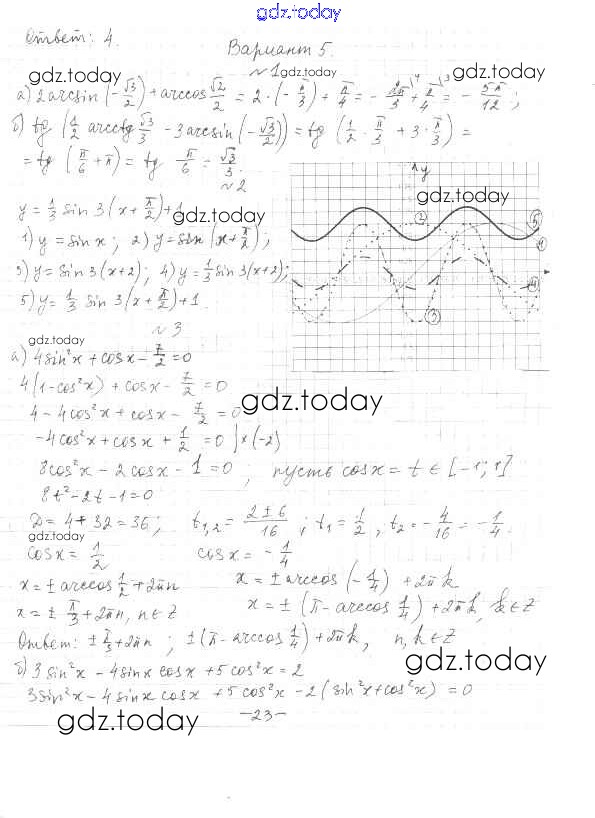 gdz.today
Ответ: 4.
Вариант 5.
gdz.today №1 gdz.today
а) 2 arcsin (-√3/2) + arccos √2/2 = 2·(-π/3) + π/4 = -2π/3 + π/4 = -5π/12;
б) tg (1/2 arcctg √3/3 - 3 arcsin (-√3/2)) = tg (1/2 · π/3 + 3·π/3) =
= tg (π/6 + π) = tg π/6 = √3/3.
№2
y
gdz.today
y = 1/3 sin 3(x + π/2) + 1
gdz.today
1) y = sin x; 2) y = sin (x + π/2);
3) y = sin 3(x+2); 4) y = 1/3 sin 3(x+2);
5) y = 1/3 sin 3(x + π/2) + 1.
2 5 4 3
№3
gdz.today
а) 4 sin²x + cos x - 7/2 = 0
4(1 - cos²x) + cos x - 7/2 = 0
4 - 4cos²x + cos x - 7/2 = 0
gdz.today
-4cos²x + cos x + 1/2 = 0 | ×(-2)
8cos²x - 2cos x - 1 = 0; пусть cos x = t ∈ [-1; 1]
8t² - 2t - 1 = 0
D = 4 + 32 = 36; t₁,₂ = (2 ± 6)/16; t₁ = 1/2, t₂ = -4/16 = -1/4.
gdz.today
cos x = 1/2 cos x = -1/4
x = ± arccos 1/2 + 2πn x = ± arccos (-1/4) + 2πk
x = ± π/3 + 2πn, n ∈ Z x = ± (π - arccos 1/4) + 2πk, k ∈ Z
gdz.today gdz.today
Ответ: ± π/3 + 2πn; ±(π - arccos 1/4) + 2πk, n, k ∈ Z
б) 3 sin²x - 4 sin x cos x + 5 cos²x = 2
gdz.today
3 sin²x - 4 sin x cos x + 5 cos²x - 2(sin²x + cos²x) = 0
gdz.today -23- gdz.today